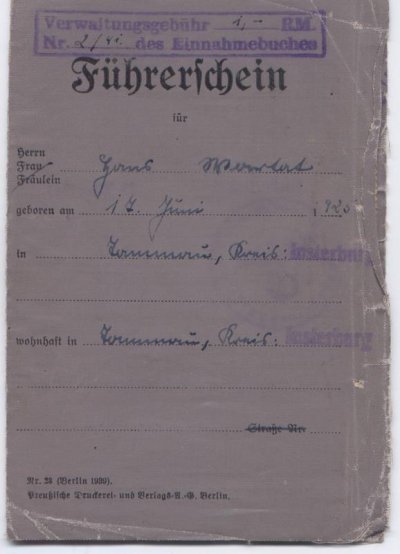 Verwaltungsgebühr 1,- RM.
Nr. 2/41 des Einnahmebuches
Führerschein
für
Herrn
Frau
Fräulein
Hans
geboren am 17. Juni 1920
in Tammau, Kreis: Insterburg
wohnhaft in Tammau, Kreis: Insterburg
Straße Nr.
Nr. 23 (Berlin 1939).
Preußische Druckerei- und Verlags-A.-G. Berlin.